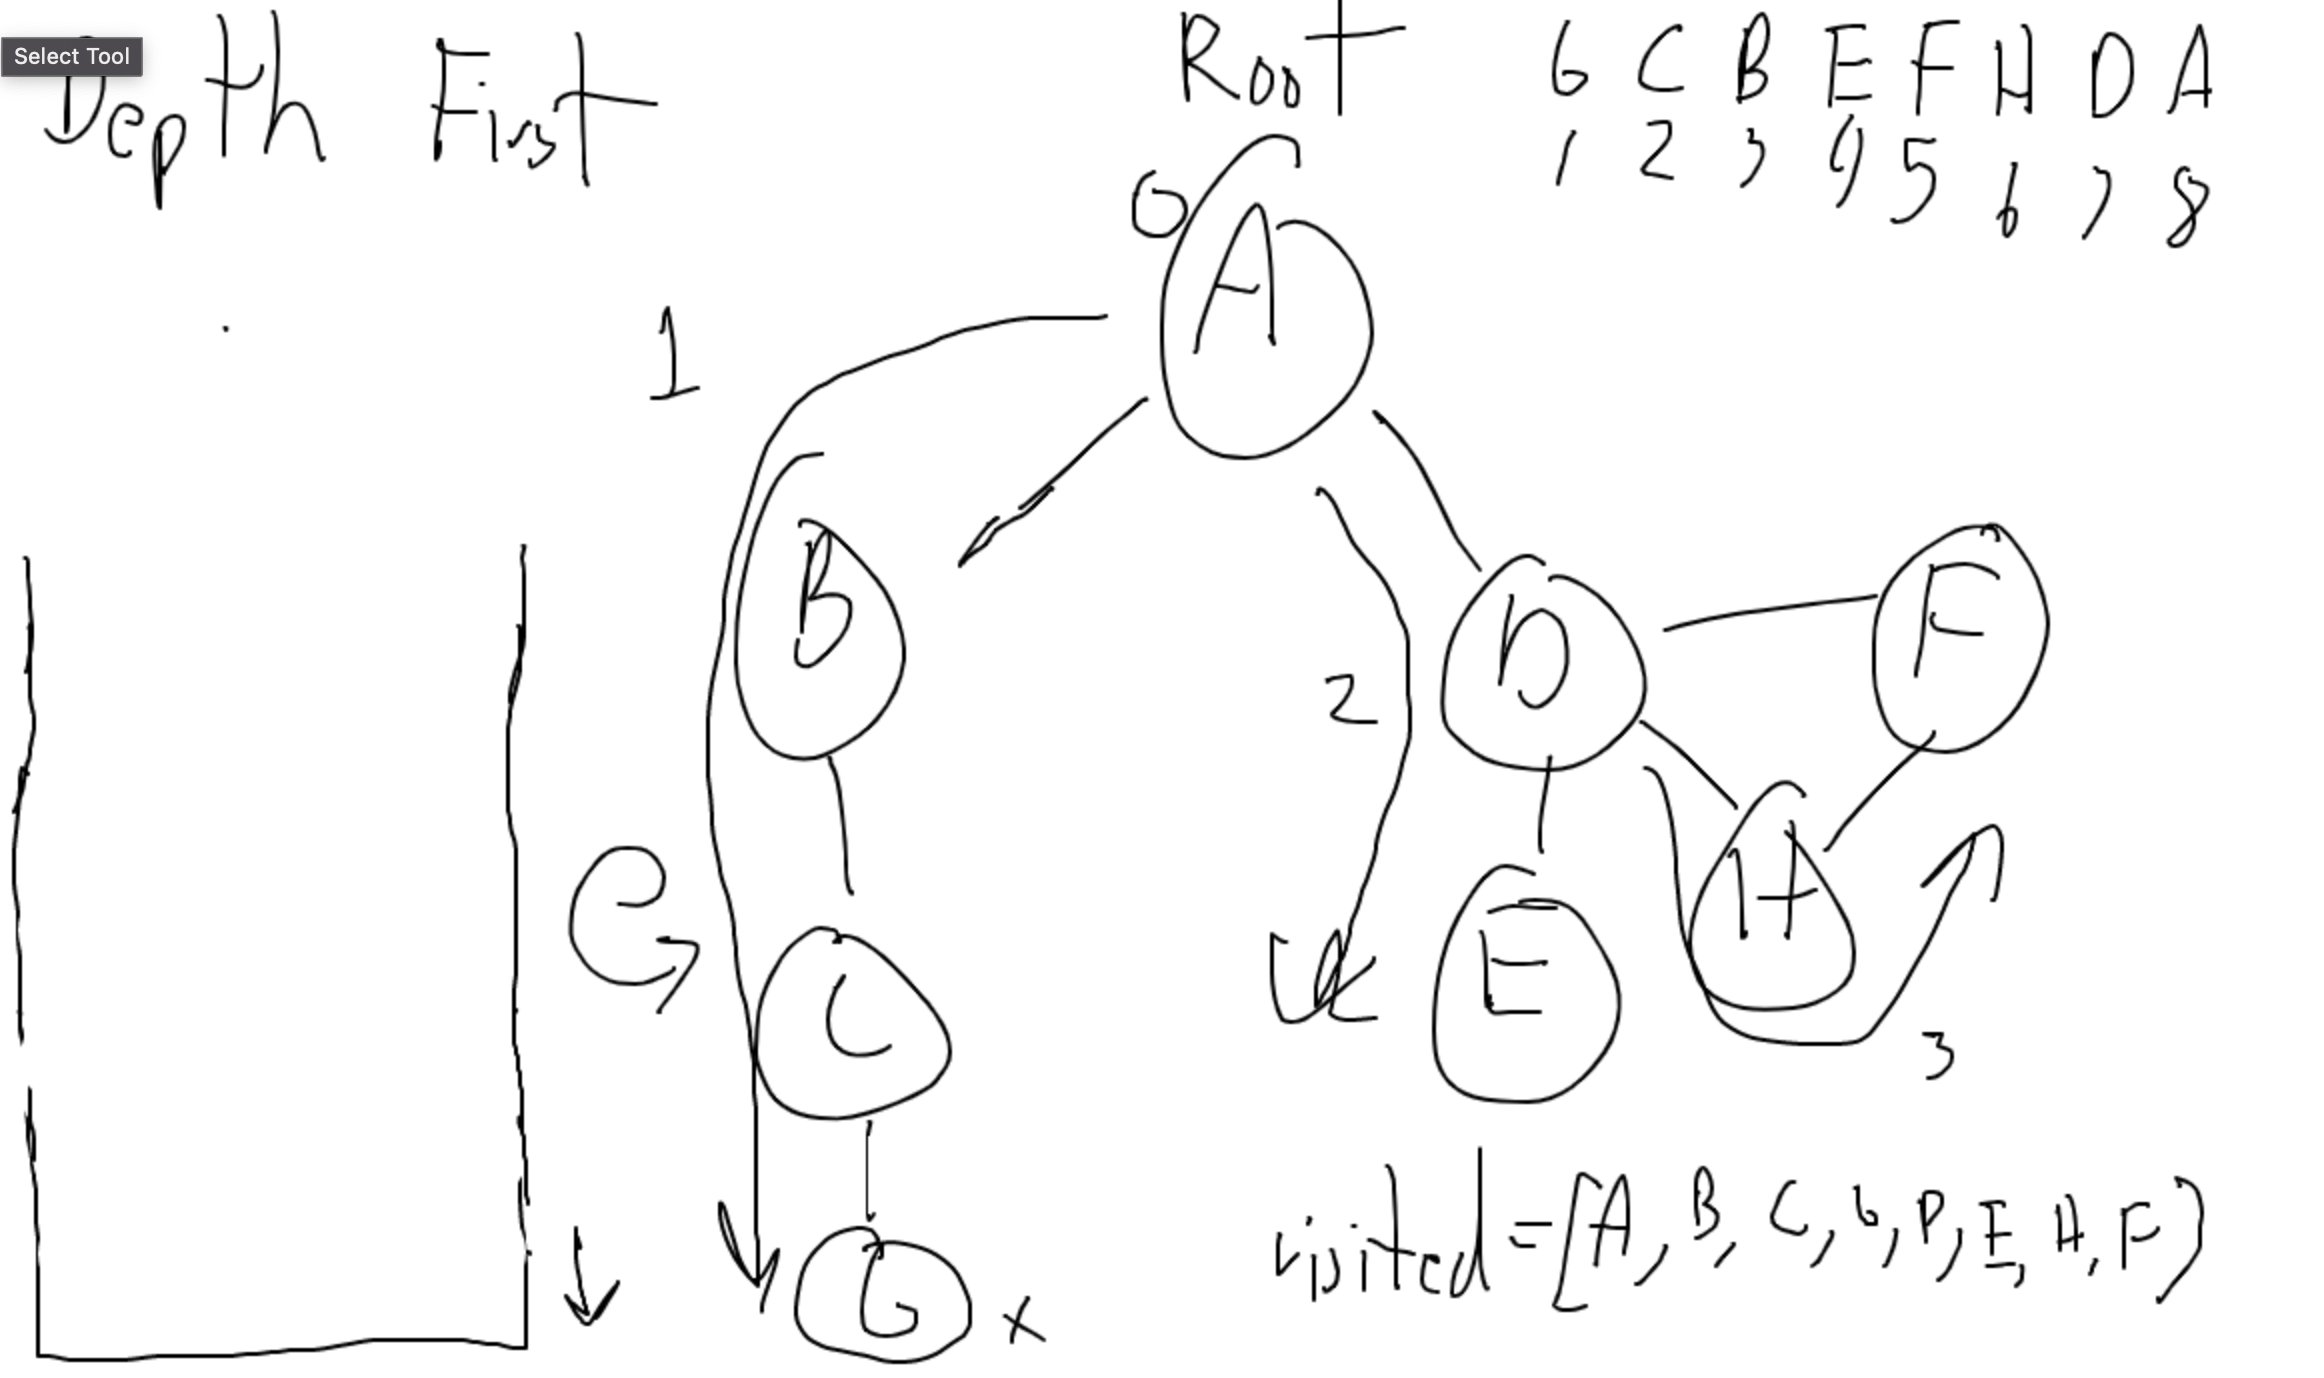 Select Tool
Depth First
Root
G C B E F H D A
1 2 3 4 5 6 7 8
0
A
1
B
D
F
2
H
C
E
3
G x
visited = [A, B, C, G, D, E, H, F]